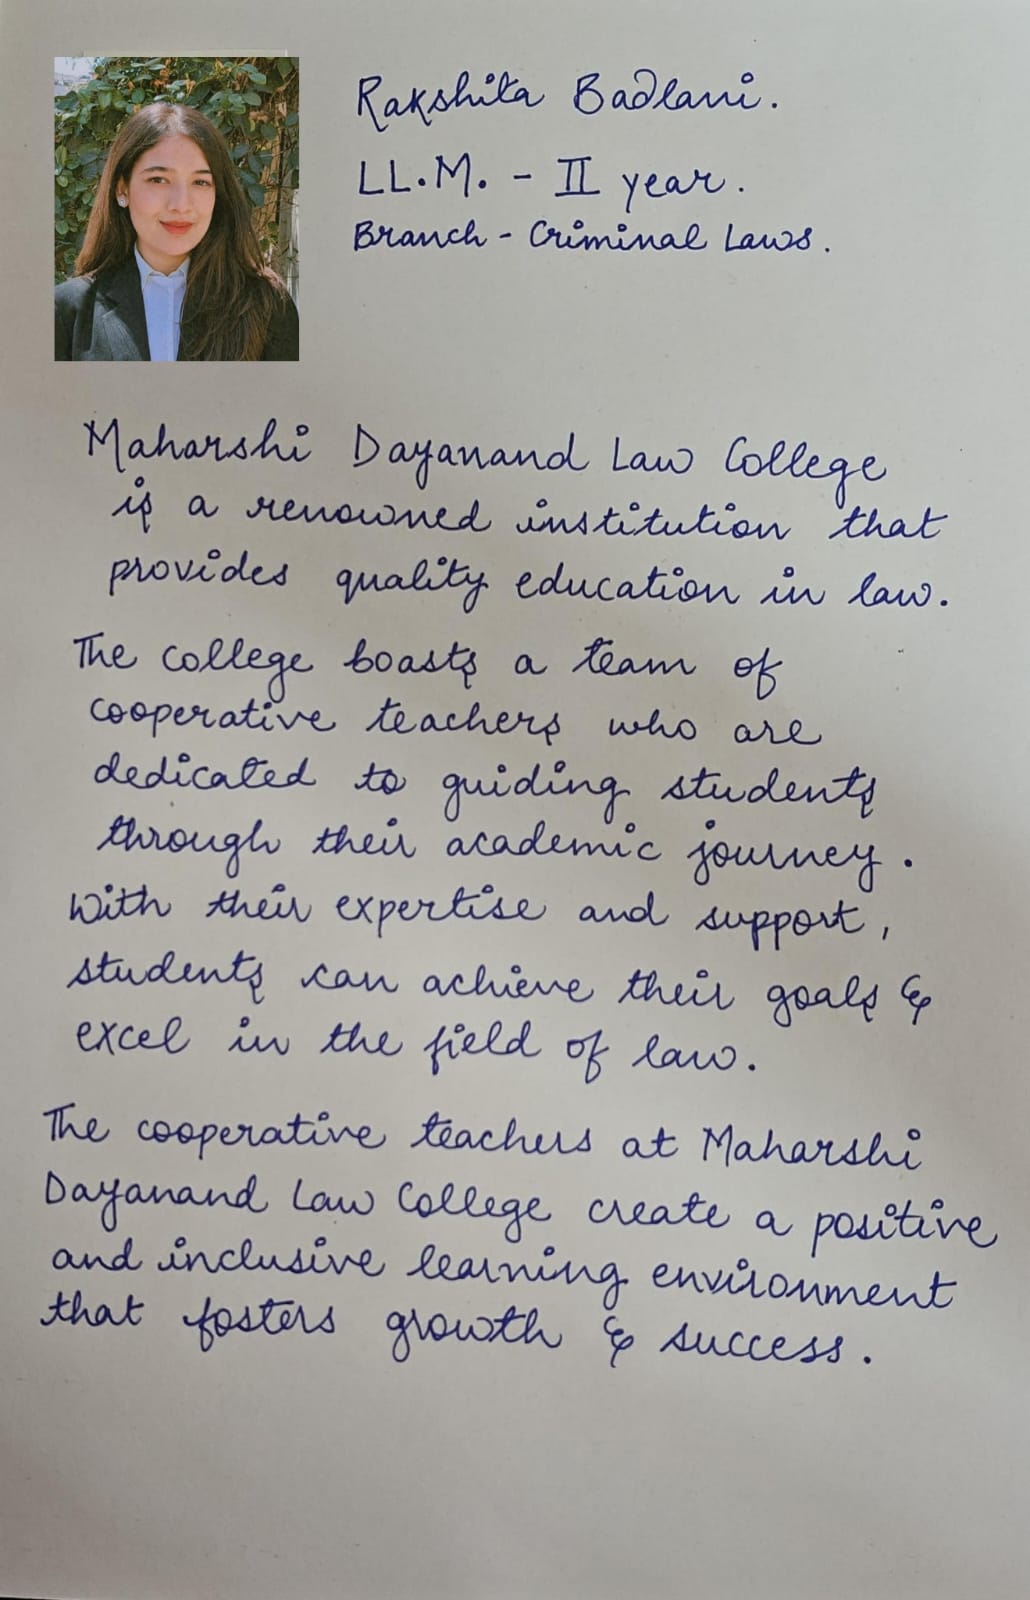 Rakshita Badlani.
LL.M. - II year.
Branch - Criminal Laws.
Maharshi Dayanand Law College
is a renowned institution that
provides quality education in law.
The college boasts a team of
cooperative teachers who are
dedicated to guiding students
through their academic journey.
With their expertise and support,
students can achieve their goals &
excel in the field of law.
The cooperative teachers at Maharshi
Dayanand Law College create a positive
and inclusive learning environment
that fosters growth & success.